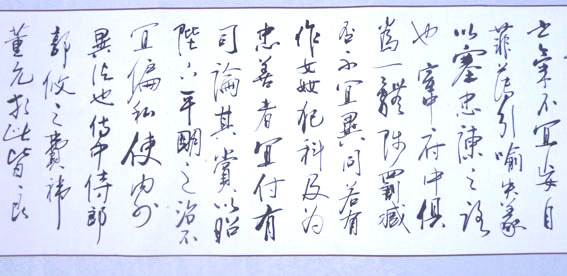 士氣不宜妄自
菲薄引喻失義
以塞忠諫之路
也宮中府中俱
為一體陟罰臧
否不宜異同若有
作姦犯科及為
忠善者宜付有
司論其賞以昭
陛下平明之治不
宜偏私使內外
異法也侍中侍郎
郭攸之費禕
董允等此皆良